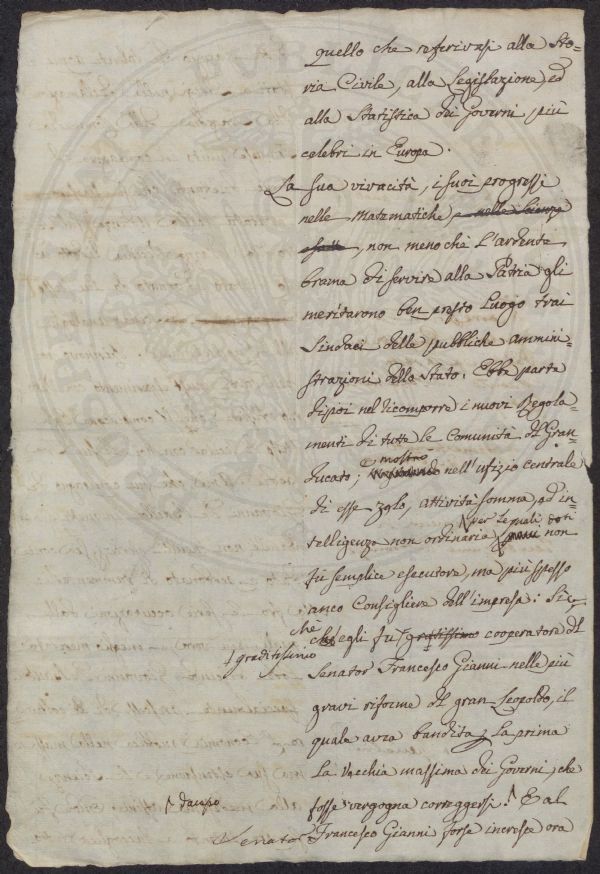 quello che referivasi alla Sto=
ria Civile, alla Legislazione, ed
alla Statistica dei Governi più
celebri in Europa.
La sua vivacità, i suoi progressi
nelle Matematiche, e nelle Scienze
esatte, non meno che l'ardente
brama di servire alla Patria gli
meritarono ben presto luogo trai
Sindaci delle pubbliche ammini=
strazioni dello Stato. Ebbe parte
dipoi nel ricomporre i nuovi Regola=
menti di tutte le Comunità del Gran=
ducato; e mostrò nell'ufizio centrale
di esse zelo, attività somma, ed in=
telligenza non ordinaria, per le quali doti non
fu semplice esecutore, ma più spesso
anco Consigliere dell'impresa: Sic=
chè egli fu graditissimo cooperatore del
Senator Francesco Gianni nelle più
gravi riforme del gran Leopoldo, il
quale avea bandita la prima
la vecchia massima dei Governi, che
fosse vergogna correggersi. E al
Senator Francesco Gianni forse incresce ora